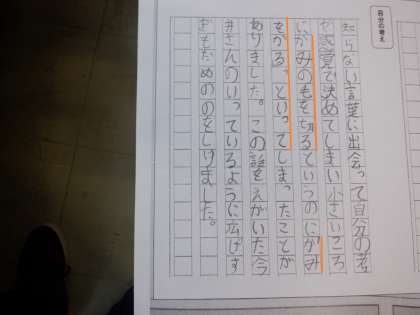 自分の考え
知らない言葉に出会って自分の考
や感覚で決めてしまい小さいころ
にがみのもを切るというのにがみ
をがる、といってしまったことが
ありました。この話をえがいた今
井さんのいっているように広げす
ぎもだめなのをしりました。